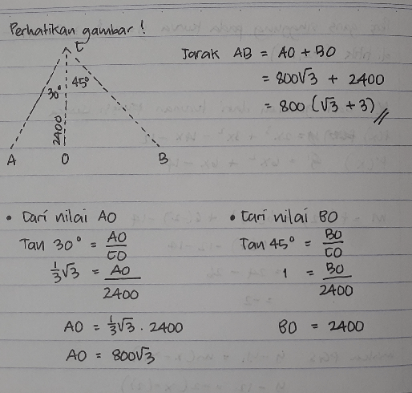 Perhatikan gambar!
C
30°
45°
2400
A
O
B
Jarak AB = AO + BO
= 800√3 + 2400
= 800 (√3 + 3)
• Cari nilai AO
Tan 30° = AO/CO
1/3√3 = AO/2400
AO = 1/3√3 . 2400
AO = 800√3
• Cari nilai BO
Tan 45° = BO/CO
1 = BO/2400
BO = 2400